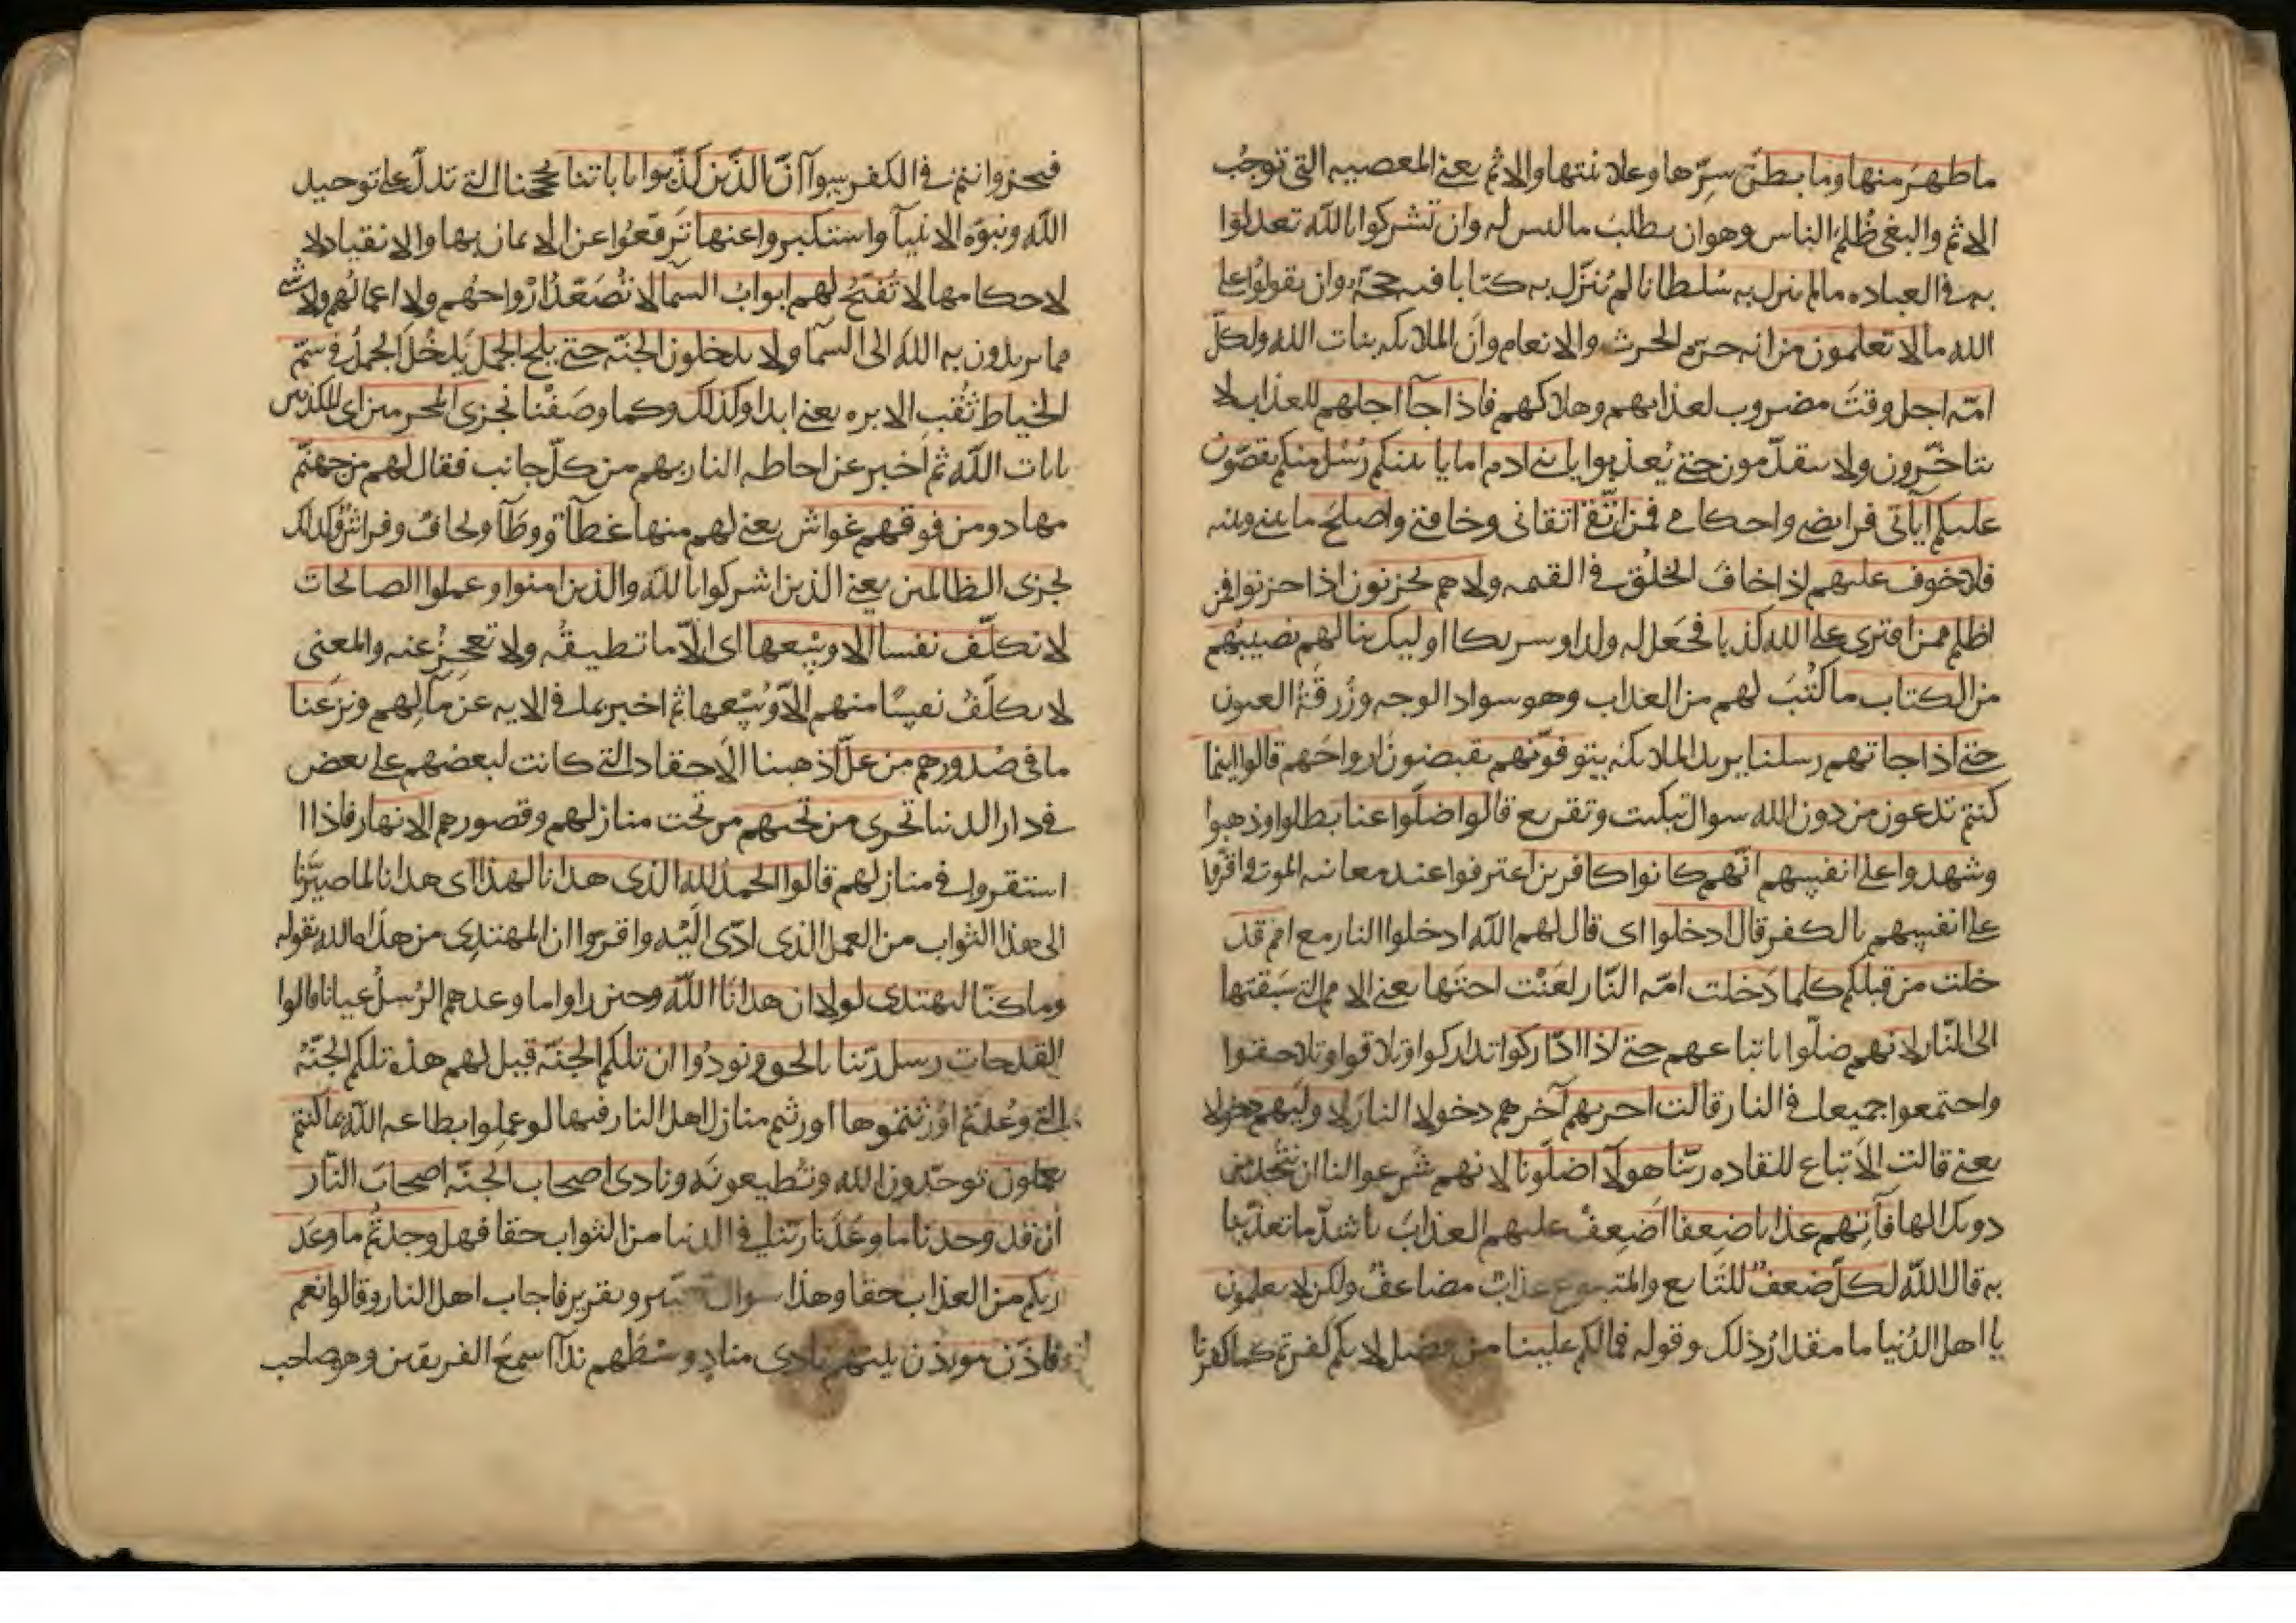 ما ظهر منها وما بطن سرّها وعلانيتها والاثم يعني المعصيه التي توجب
الاثم والبغي ظلم الناس وهو ان يطلب ما ليس له وان تشركوا بالله تعدلوا
به في العباده ما لم ينزل به سلطانا لم يُنزّل به كتابا فيه حجّة وان تقولوا على
الله ما لا تعلمون من انه حرّم الحرث والانعام وانّ الملايكه بنات الله ولكلّ
امّه اجل وقت مضروب لعذابهم وهلاكهم فاذا جآ اجلهم للعذاب لا
يتاخّرون ولا يتقدّمون حتى يُعذبوا يا بني ادم اما ياتينكم رُسُل منكم يقصّون
عليكم آياتي فرايضي واحكامي فمن اتّقى اتقاني وخافني واصلح ما بيني وبينه
فلا خوف عليهم اذا خاف الخلق في القيمه ولا هم يحزنون اذا حزنوا فمن
اظلم ممن افترى على الله كذبا فجعل له ولدا وشريكا اوليك ينالهم نصيبهم
من الكتاب ما كُتب لهم من العذاب وهو سواد الوجه وزُرقَة العيون
حتى اذا جاتهم رسلنا يريد الملايكه يتوفّونهم يقبضون ارواحهم قالوا اينما
كنتم تدعون من دون الله سوال تبكيت وتقريع قالوا ضلّوا عنا بطلوا وذهبوا
وشهدوا على انفسهم انّهم كانوا كافرين اعترفوا عند معاينه الموت واقرّوا
على انفسهم بالكفر قال ادخلوا اى قال لهم الله ادخلوا النار مع امم قد
خلت من قبلكم كلما دخلت امّه النّار لعَنْت اختها يعني الامم التي سَبقتها
الى النّار لانهم ضلّوا باتباعهم حتى اذا ادّاركوا تداركوا وتلاقوا وتلاحقوا
واجتمعوا جميعا في النار قالت اخريهم آخرهم دخولا النار لاوليهم دخولا
يعني قالت الاتباع للقاده ربّنا هولآ اضلّونا لانهم شرعوا لنا ان نتّخذ من
دونك الها فآتهم عذابا ضِعفا اَضعِفْ عليهم العذاب باشدّ ما تعذّبنا
به قال الله لكلّ ضعفٌ للتابع والمتبوع عذابٌ مضاعفٌ ولكن لا يعلمون
يا اهل الدُنيا ما مقدارُ ذلك وقوله فما لكم علينا من فضل لانكم كفرتم كما كفرنا
فنحن وانتم في الكفر سوآ انّ الّذين كذّبوا باياتنا بحججنا التي تدلّ على توحيد
الله ونبوّه الانبيآ واستكبروا عنها تَرَفّعُوا عن الايمان بها والانقياد لا
لاحكامها لا تُفتّحُ لهم ابوابُ السمآ لا تُصَعّدُ ارْواحُهم ولا اعمالُهم ولا شي
مما يريدون به الله الى السمآ ولا يدخلون الجنّه حتى يلج الجمل يَدخُلَ الجمل في سمّ
الخياط ثُقب الابره يعني ابدا وكذلك وكما وصَفْنا نجزى المجرمين اى المكذبين
بايات الله ثم اخبر عن احاطه النار بهم من كلّ جانب فقال لهم من جهنّم
مهاد ومن فوقهم غواش يعني لهم منها غطآٌ ووطآ ولحافٌ وفراشٌ وكذلك
نجزى الظالمين يعني الذين اشركوا بالله والذين امنوا وعملوا الصالحات
لا نكلّف نفسا الّا وسعها اى الّا ما تطيقُه ولا تعجزُ عنه والمعنى
لا نكلّفُ نفسًا منهم الّا وُسْعها ثم اخبر بما في الايه عن مآلهم ونزعنا
ما في صُدورهم من غلّ اذهبنا الاحقاد التي كانت لبعضهم على بعض
في دار الدنيا تجرى من تحتهم من تحت منازلهم وقصورهم الانهار فاذا ا
استقروا في منازلهم قالوا الحمدُ لله الذى هدانا لهذا اى هدانا لما صيّرنا
الى هذا الثواب من العمل الذى ادّى اليْه واقروا ان المهتدى من هداه الله بقوله
وما كنّا لنهتدى لولا ان هدانا اللهُ وحين راوا ما وعدهم الرُسلُ عيانا قالوا
لقد جات رسل ربّنا بالحق ونودُوا ان تلكم الجنّه قيل لهم هذه تلكم الجنّهُ
التي وُعدتم اوْرثتموها اورثتم منازل اهل النار فيها لو عملوا بطاعه الله بما كنتم
تعملون توحّدون الله وتُطيعونَه ونادى اصحاب الجنّه اصحابَ النّار
اَن قد وجدنا ما وعَدنا ربّنا في الدنيا من الثواب حقا فهل وجدتُم ما وعَد
ربكم من العذاب حقا وهذا سوال وتقرير فاجاب اهل النار وقالوا نعم
فاذّن موذّن بينهم نادى منادٍ وسْطَهم ندآ اسمعَ الفريقين وهو صاحب